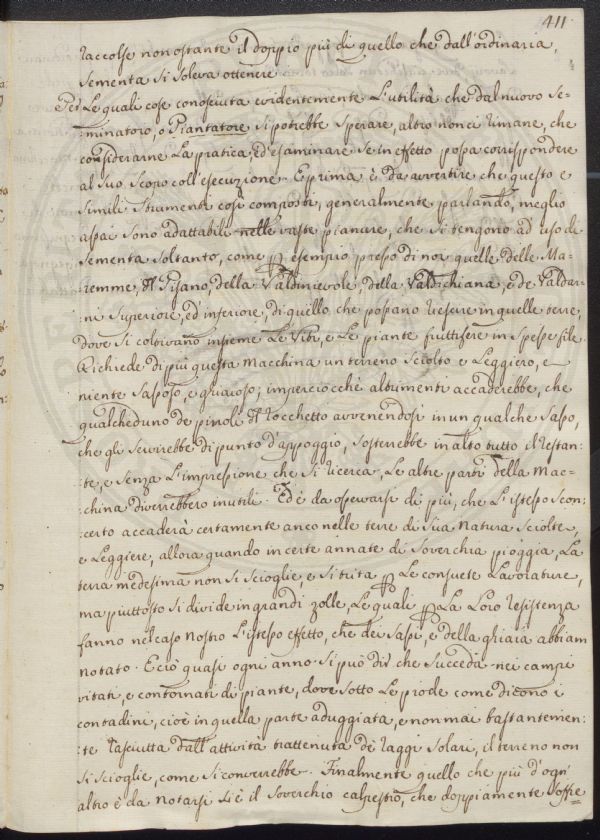 411.
raccolse non ostante il doppio più di quello che dall'ordinaria
sementa si soleva ottenere
Per le quali cose conosciuta evidentemente l'utilità che dal nuovo Se-
-minatoro, o Piantatore si potrebbe sperare, altro non ci rimane, che
considerarne la pratica, ed esaminare se in effetto possa corrispondere
al suo scopo coll'esecuzione. E prima è da avvertire che questo e
simili Strumenti così composti, generalmente parlando, meglio
assai sono adattabili nelle vaste pianure, che si tengono ad uso di
sementa soltanto, come p esempio presso di noi quelle delle Ma-
remme, del Pisano, della Valdinievole, della Valdichiana, e de Valdar-
ni Superiore, ed inferiore, di quello che possano essere in quelle terre,
dove si coltivano insieme le Viti, e le piante fruttifere in spesse file.
Richiede di più questa Macchina un terreno sciolto e leggiero, e
niente sassoso, e ghiaioso; imperciocchè altrimenti accaderebbe, che
qualcheduno de pinoli del rocchetto avvenendosi in un qualche sasso,
che gli servirebbe di punto d'appoggio, sosterrebbe in alto tutto il restan-
-te, e senza l'impressione che si ricerca, le altre parti della Mac-
-china diverrebbero inutili. Ed è da osservarsi di più, che l'istesso scon-
certo accaderà certamente anco nelle terre di sua natura sciolte,
e leggiere, allora quando in certe annate di soverchia pioggia, la
terra medesima non si scioglie, e si trita p le consuete lavorature,
ma piuttosto si divide in grandi zolle, le quali p la loro resistenza
fanno nel caso nostro l'istesso effetto, che dei sassi, e della ghiaia abbiam
notato. E ciò quasi ogni anno si può dir che succeda nei campi
vitati, e contornati di piante, dove sotto le prode come dicono i
contadini, cioè in quella parte aduggiata, e non mai bastantemen-
-te rasciutta dall'attività trattenuta de' raggi solari, il terreno non
si scioglie, come si converrebbe. Finalmente quello che più d'ogn'
altro è da notarsi si è il soverchio calpestio, che doppiamente offre=